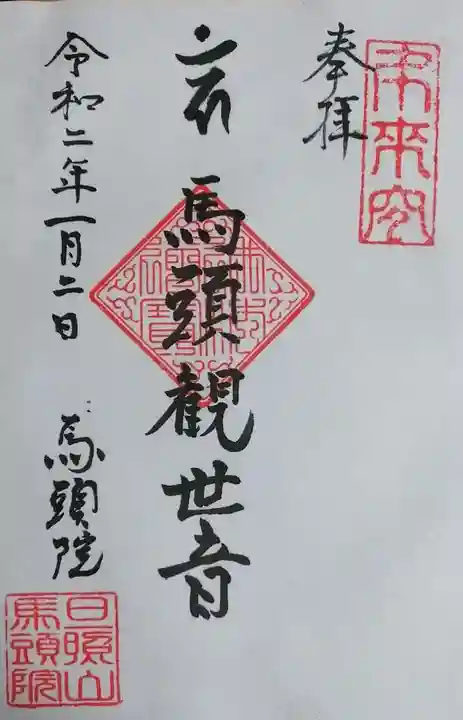 奉拝
馬頭観世音
令和二年一月二日
馬頭院
日照山
馬頭院